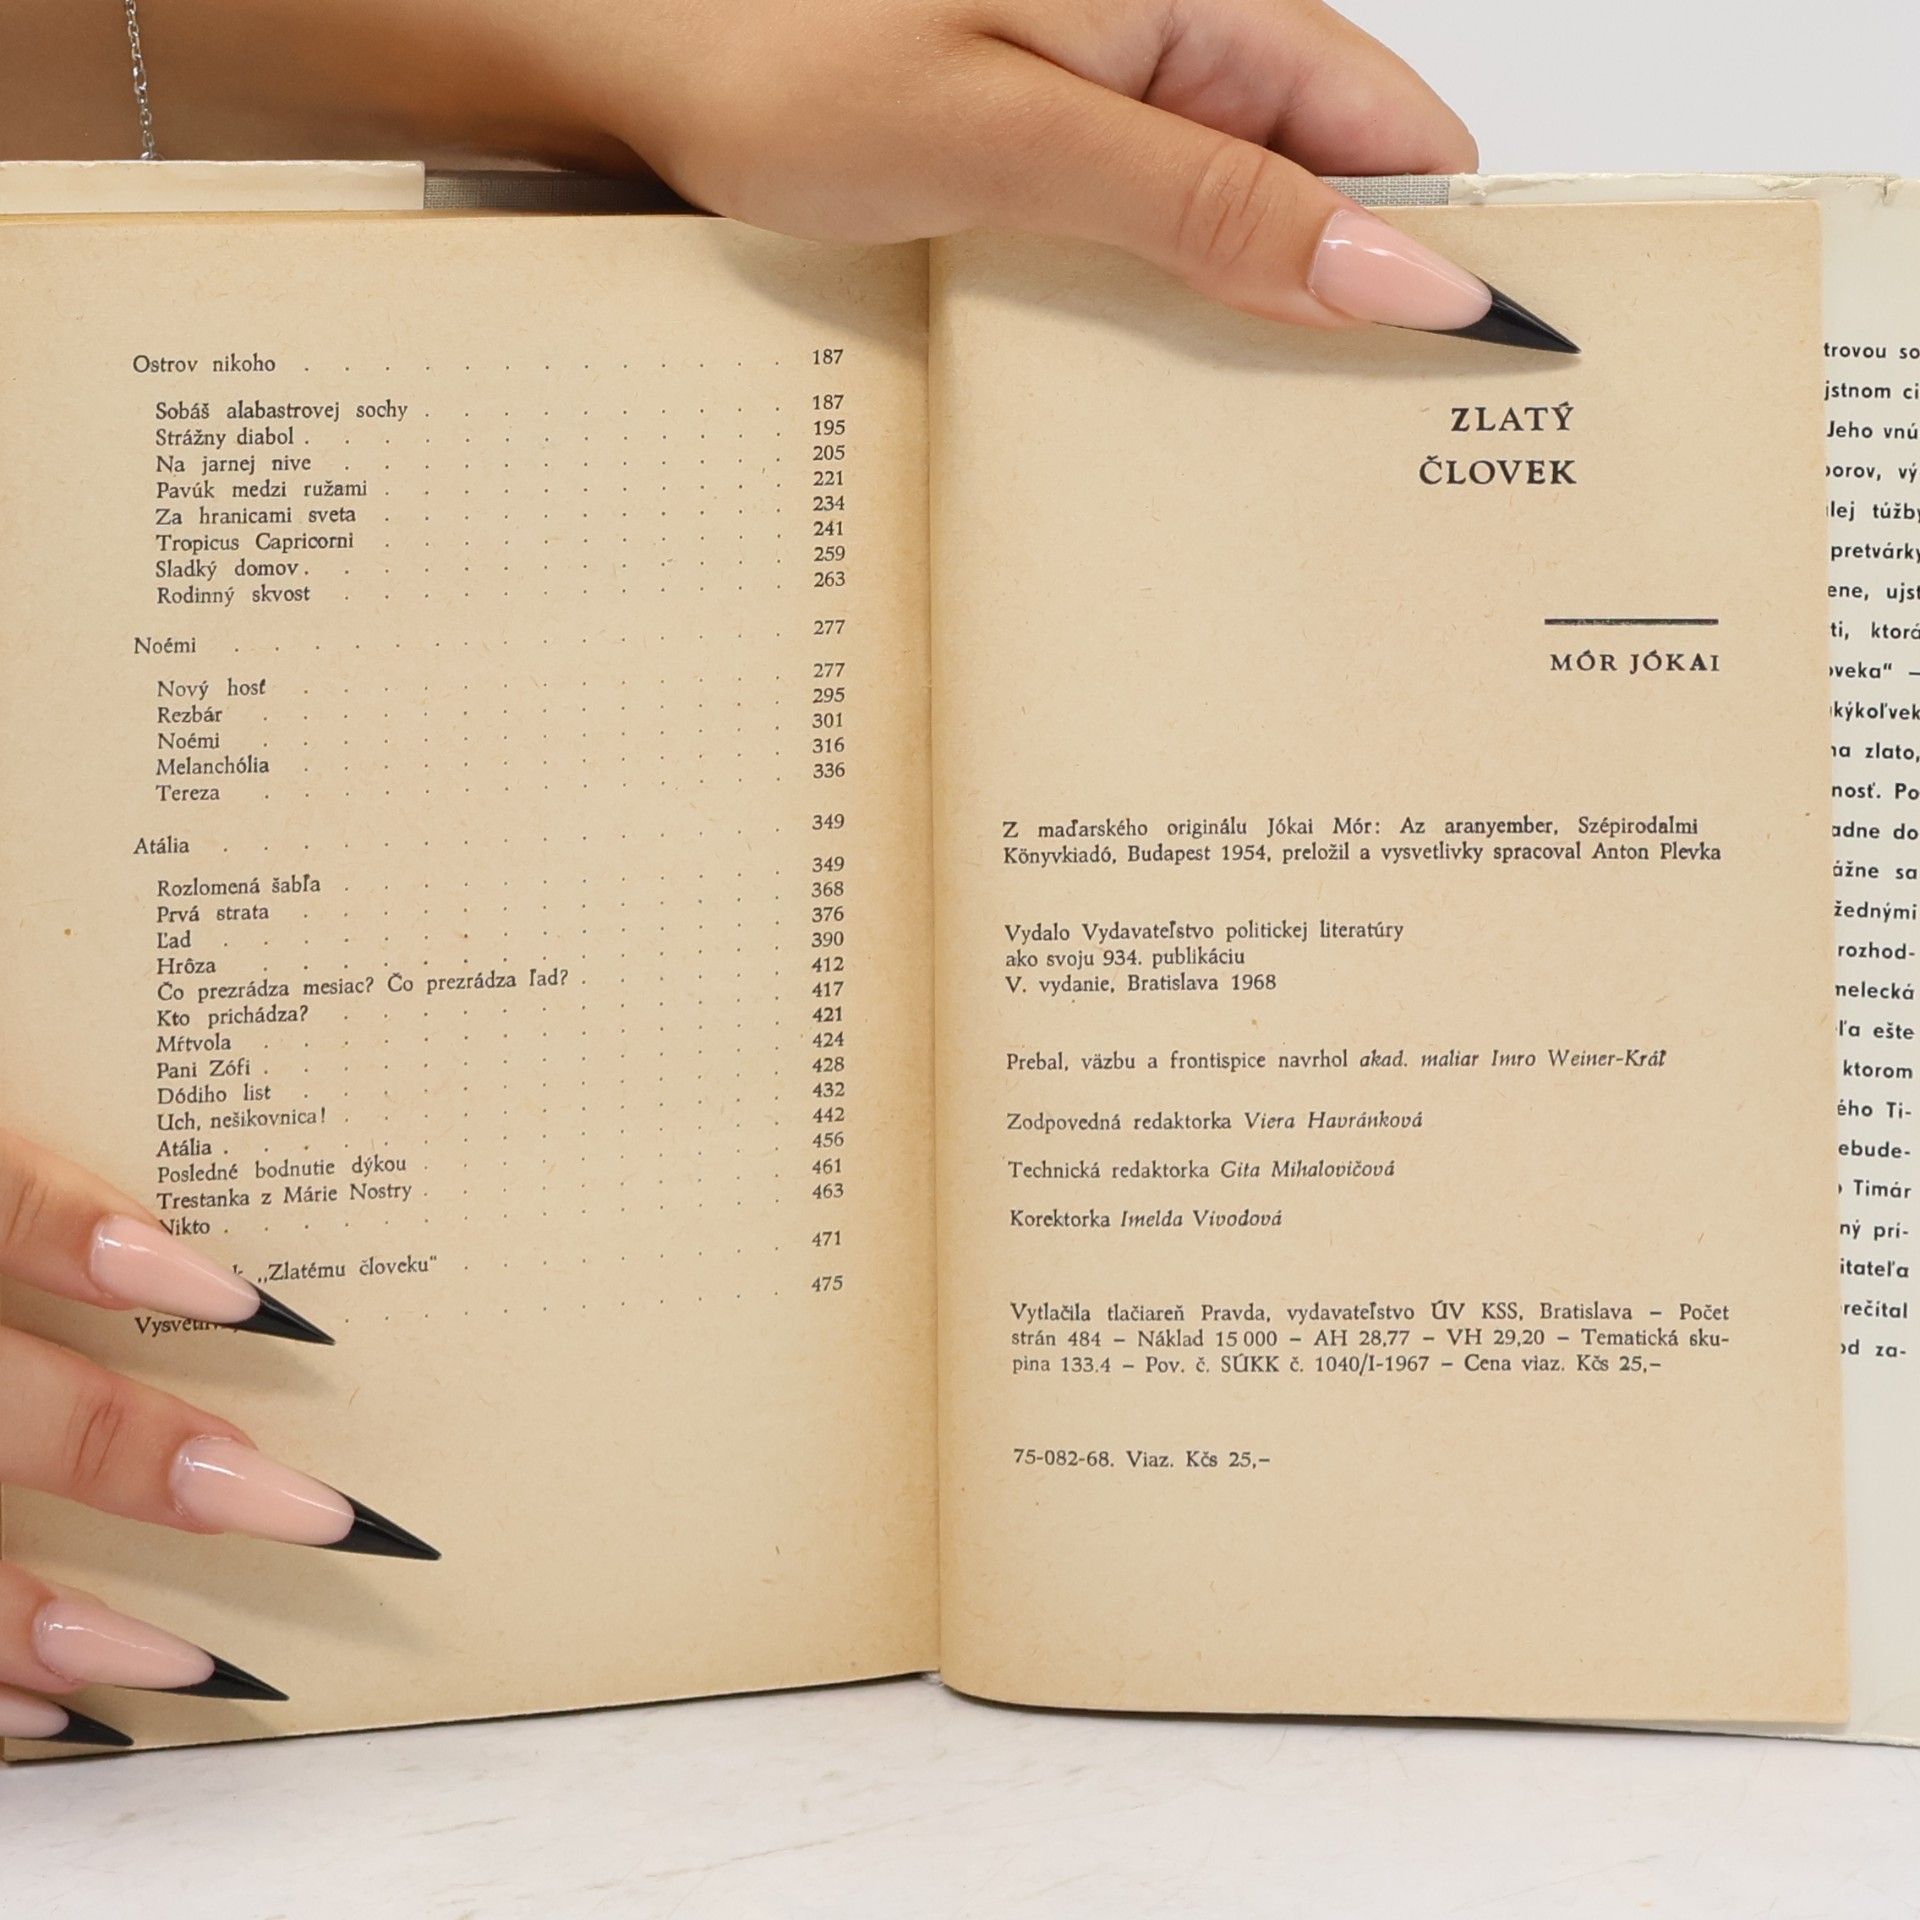 Ostrov nikoho . . . . . . . . . . . . . 187
Sobáš alabastrovej sochy . . . . . . . . . . 187
Strážny diabol . . . . . . . . . . . . . 195
Na jarnej nive . . . . . . . . . . . . 205
Pavúk medzi ružami . . . . . . . . . . . 221
Za hranicami sveta . . . . . . . . . . . 234
Tropicus Capricorni . . . . . . . . . . . 241
Sladký domov . . . . . . . . . . . . . 259
Rodinný skvost . . . . . . . . . . . . 263
Noémi . . . . . . . . . . . . . . . 277
Nový hosť . . . . . . . . . . . . . 277
Rezbár . . . . . . . . . . . . . . 295
Noémi . . . . . . . . . . . . . . 301
Melanchólia . . . . . . . . . . . . . 316
Tereza . . . . . . . . . . . . . . 336
Atália . . . . . . . . . . . . . . . 349
Rozlomená šabľa . . . . . . . . . . . . 349
Prvá strata . . . . . . . . . . . . . 368
Ľad . . . . . . . . . . . . . . . 376
Hrôza . . . . . . . . . . . . . . 390
Čo prezrádza mesiac? Čo prezrádza ľad? . . . . . . 412
Kto prichádza? . . . . . . . . . . . . 417
Mŕtvola . . . . . . . . . . . . . . 421
Pani Zófi . . . . . . . . . . . . . . 424
Dódiho list . . . . . . . . . . . . . 428
Uch, nešikovnica! . . . . . . . . . . . . 432
Atália . . . . . . . . . . . . . . . 442
Posledné bodnutie dýkou . . . . . . . . . . 456
Trestanka z Márie Nostry . . . . . . . . . . 461
Nikto . . . . . . . . . . . . . . . 463
k „Zlatému človeku“ . . . . . . . . . 471
. . . . . . . . . . . . 475
ZLATÝ
ČLOVEK
MÓR JÓKAI
Z maďarského originálu Jókai Mór: Az aranyember, Szépirodalmi
Könyvkiadó, Budapest 1954, preložil a vysvetlivky spracoval Anton Plevka
Vydalo Vydavateľstvo politickej literatúry
ako svoju 934. publikáciu
V. vydanie, Bratislava 1968
Prebal, väzbu a frontispice navrhol akad. maliar Imro Weiner-Kráľ
Zodpovedná redaktorka Viera Havránková
Technická redaktorka Gita Mihalovičová
Korektorka Imelda Vivodová
Vytlačila tlačiareň Pravda, vydavateľstvo ÚV KSS, Bratislava – Počet
strán 484 – Náklad 15 000 – AH 28,77 – VH 29,20 – Tematická sku-
pina 133.4 – Pov. č. SÚKK č. 1040/I-1967 – Cena viaz. Kčs 25,–
75-082-68. Viaz. Kčs 25,–
trovou so
jstnom ci
Jeho vnú
orov, vý
lej túžby
pretvárky
ene, ujst
ti, ktorá
veka“ –
kýkoľvek
na zlato,
nosť. Po
adne do
ážne sa
žednými
rozhod-
melecká
ľa ešte
ktorom
ého Ti-
ebude-
Timár
ný pri-
itateľa
rečítal
od za-